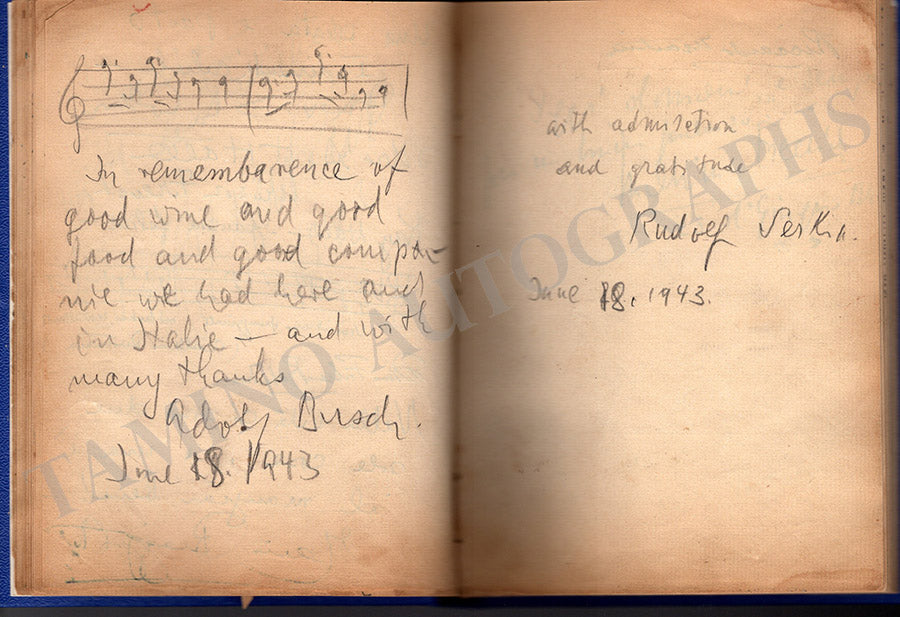 In remembarence of
good wine and good
food and good compa-
nie we had here and
in Italie — and with
many thanks
Adolf Busch.
June 18. 1943
with admiration
and gratitude
Rudolf Serkin.
June 18. 1943.
TAMINO AUTOGRAPHS